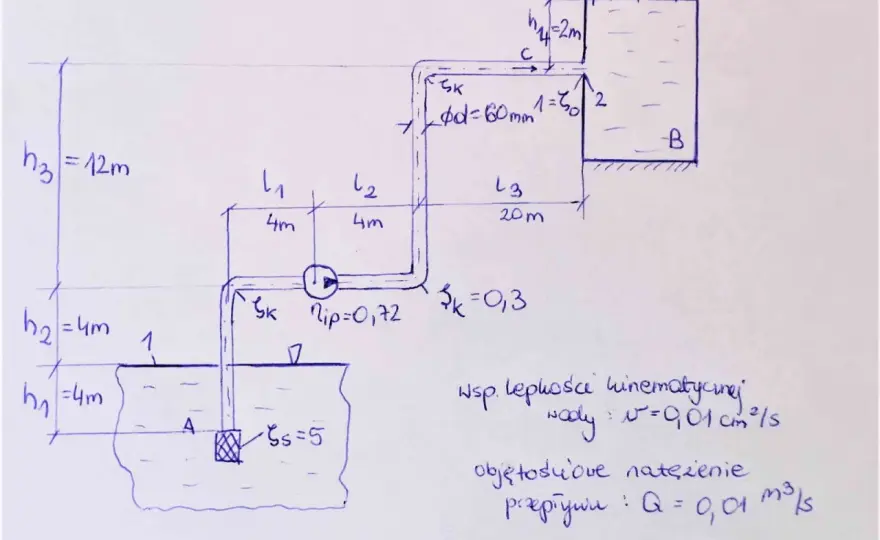 h4=2m
C
ζK
ϕd=60mm
1=ζo
2
B
h3=12m
l1
l2
l3
4m
4m
20m
ζK
ηip=0,72
ζK=0,3
h2=4m
1
h1=4m
A
ζS=5
wsp. lepkości kinematycznej
wody : ν=0,01 cm²/s
objętościowe natężenie
przepływu : Q = 0,01 m³/s